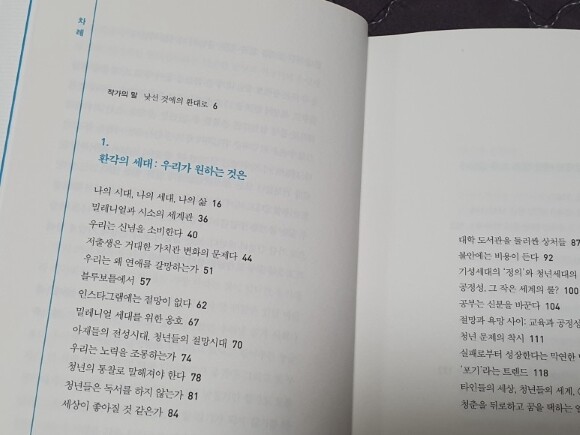 차례
작가의 말 낯선 것에의 환대로 6
1.
환각의 세대: 우리가 원하는 것은
나의 시대, 나의 세대, 나의 삶 16
밀레니얼과 시소의 세계관 36
우리는 신념을 소비한다 40
저출생은 거대한 가치관 변화의 문제다 44
우리는 왜 연애를 갈망하는가 51
블루보틀에서 57
인스타그램에는 절망이 없다 62
밀레니얼 세대를 위한 옹호 67
아재들의 전성시대, 청년들의 절망시대 70
우리는 노력을 조롱하는가 74
청년의 통장로 말해져야 한다 78
청년들은 독서를 하지 않는가 81
세상이 좋아질 것 같은가 84
대학 도서관을 둘러싼 상처들 87
불안에는 비용이 든다 92
기성세대의 '정의'와 청년세대의
공정성, 그 작은 세계의 룰? 100
공부는 신분을 바꾼다 104
절망과 욕망 사이: 교육과 공정성
청년 문제의 착시 111
실패로부터 성장한다는 막연한
'포기'라는 트렌드 118
타인들의 세상, 청년들의 세계,
청춘을 뒤로하고 꿈을 택하는